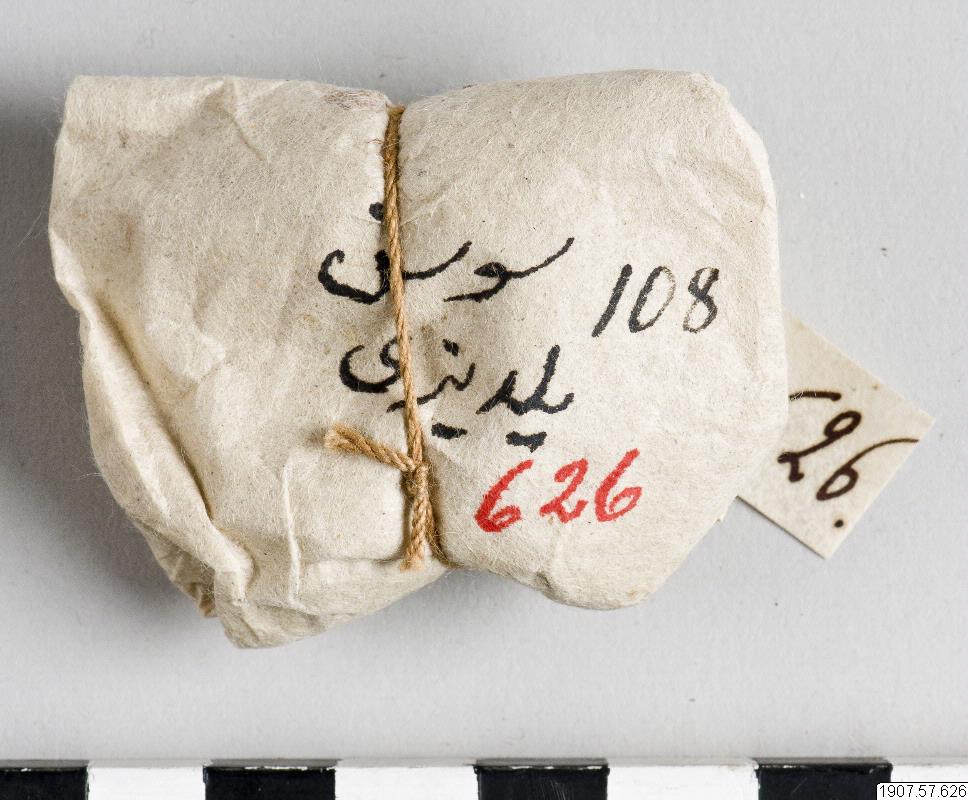 سوسن
108
یلدیزی
626
626.
1907.57.626